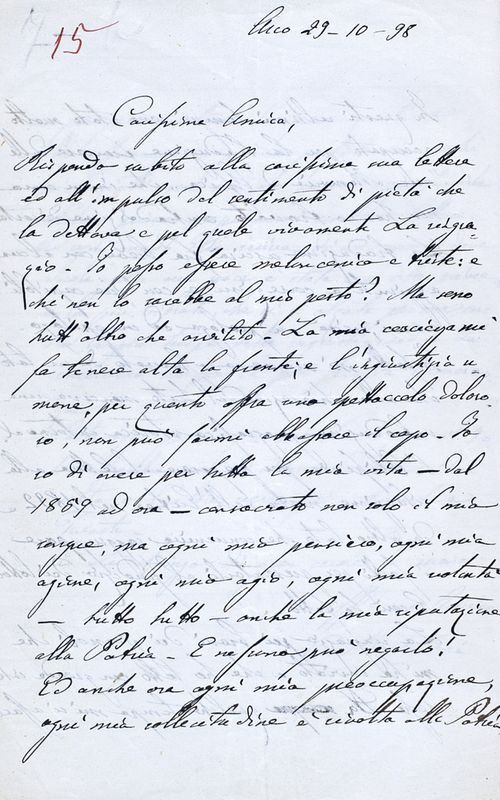 15
Arco 29-10-98
Carissima Amica,
Rispondo subito alla carissima sua lettera
ed all'impulso del sentimento di pietà che
la dettava e pel quale vivamente La ringra-
zio - Io posso essere melanconico e triste: e
chi non lo sarebbe al mio posto? Ma sono
tutt'altro che avvilito - La mia coscienza mi
fa tenere alta la fronte; e l'ingiustizia u-
mana, per quanto offra uno spettacolo doloro-
so, non può farmi abbassare il capo - Io
so di avere per tutta la mia vita - dal
1859 ad ora - consacrato non solo il mio
sangue, ma ogni mio pensiero, ogni mia
azione, ogni mio agio, ogni mia volontà
- tutto tutto - anche la mia riputazione
alla Patria - E nessuno può negarlo!
Ed anche ora ogni mia preoccupazione,
ogni mia sollecitudine è rivolta alla Patria